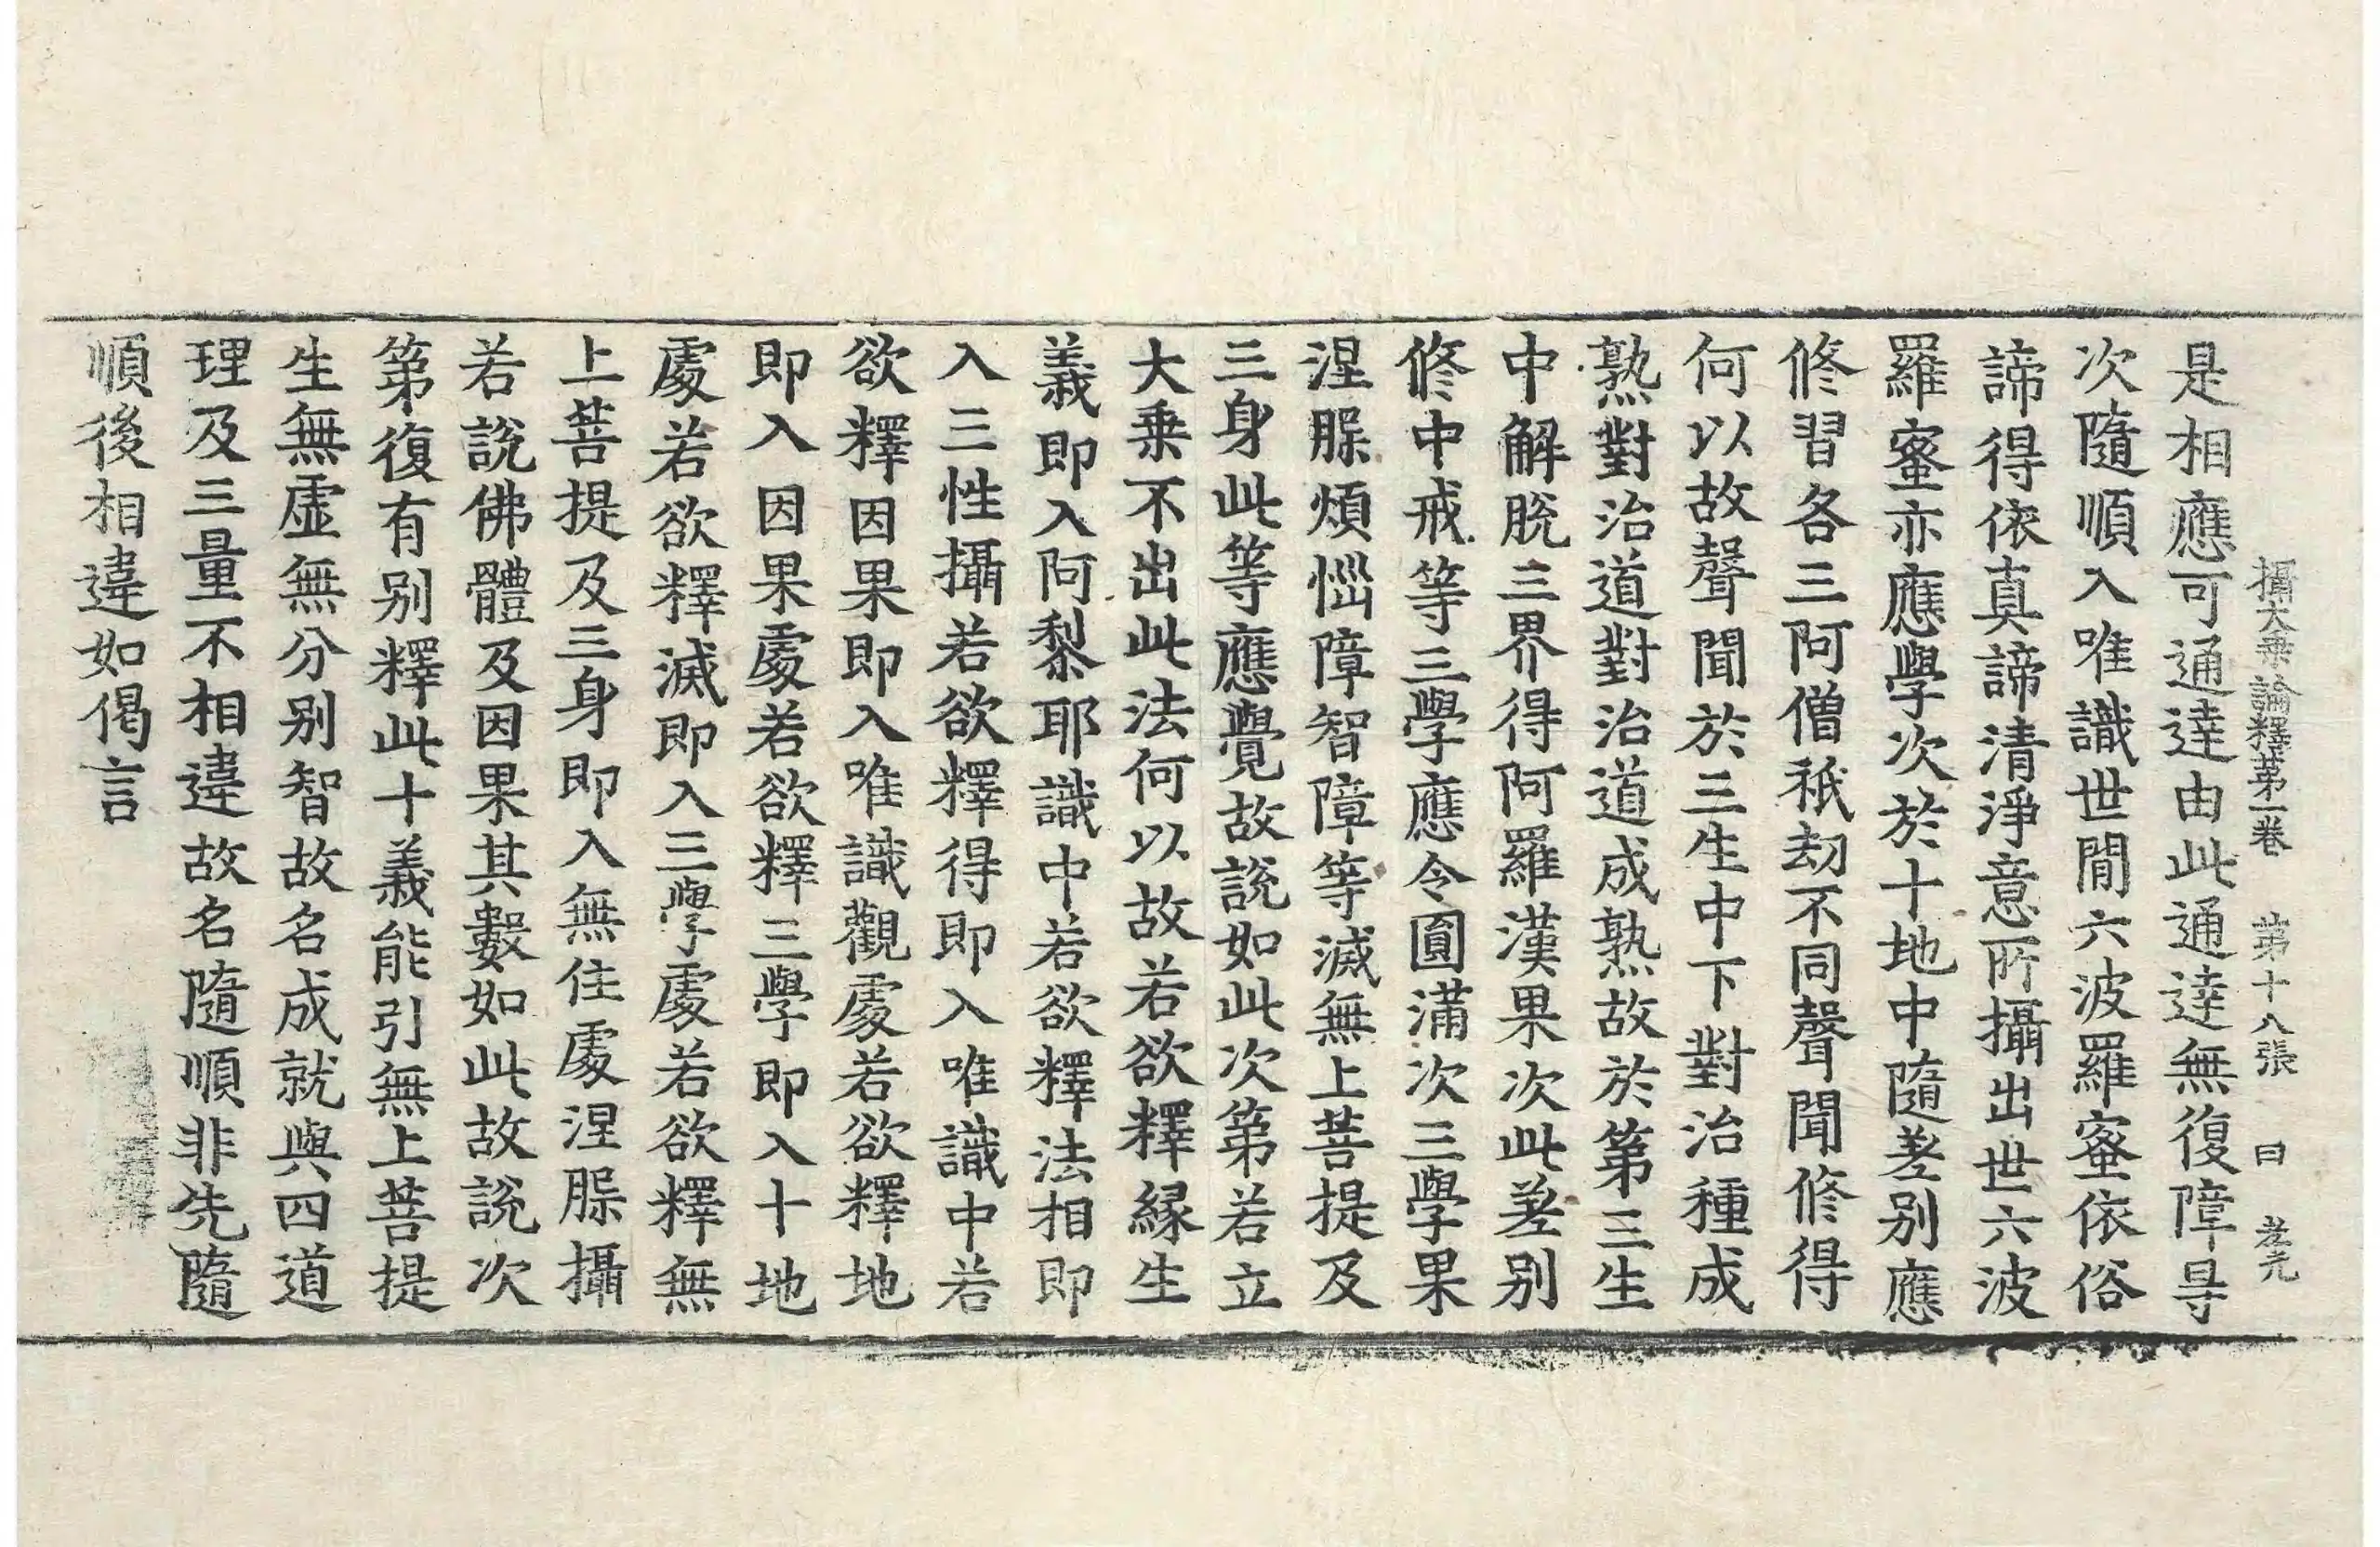 攝大乗論釋第一卷　第十八張　曰　孝元
是相應可通達由此通達無復障㝵
次隨順入唯識世間六波羅蜜依俗
諦得依真諦清淨意所攝出世六波
羅蜜亦應學次於十地中隨差别應
修習各三阿僧祇劫不同聲聞修得
何以故聲聞於三生中下對治種成
熟對治道對治道成熟故於第三生
中解脫三界得阿羅漢果次此差别
修中戒等三學應令圓滿次三學果
涅槃煩惱障智障等滅無上菩提及
三身此等應覺故說如此次第若立
大乗不出此法何以故若欲釋縁生
義即入阿黎耶識中若欲釋法相即
入三性攝若欲釋得即入唯識中若
欲釋因果即入唯識觀處若欲釋地
即入因果處若欲釋三學即入十地
處若欲釋滅即入三學處若欲釋無
上菩提及三身即入無住處涅槃攝
若說佛體及因果其數如此故說次
第復有别釋此十義能引無上菩提
生無虛無分别智故名成就與四道
理及三量不相違故名隨順非先隨
順後相違如偈言